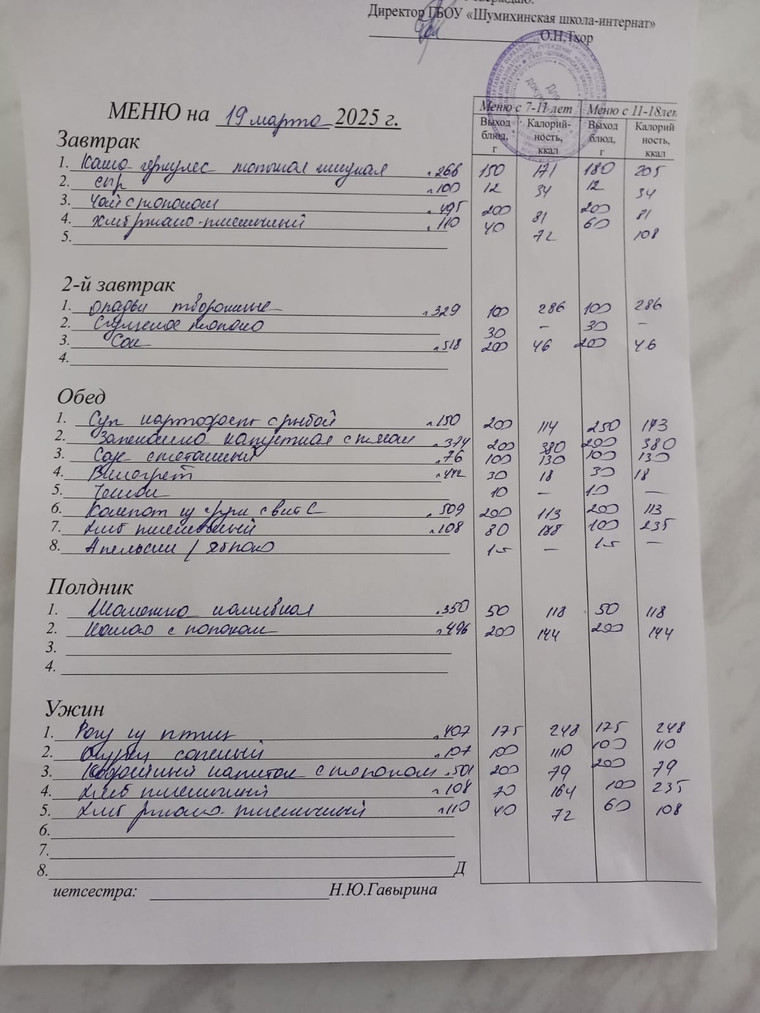 Утверждаю:
Директор ГБОУ «Шумихинская школа-интернат»
О.Н.Ткор
МЕНЮ на 19 марта 2025 г.
Меню с 7-11 лет Меню с 11-18лет
Выход блюд, г Калорий-ность, ккал Выход блюд, г Калорий ность, ккал
Завтрак
1. Каша геркулес молочная жидкая л.266 150 171 180 205
2. Сыр л.100 12 34 12 34
3. Чай с молоком л.495 200 81 200 81
4. Хлеб ржано-пшеничный л.110 40 72 60 108
5.
2-й завтрак
1. оладьи творожные л.329 100 286 100 286
2. Сгущеное молоко 30 – 30 –
3. Сок л.518 200 46 200 46
4.
Обед
1. Суп картофельн с рыбой л.150 200 114 250 143
2. Запеканка капустная с мясом л.374 200 380 200 380
3. Соус сметанный л.76 100 130 100 130
4. Винегрет 30 18 30 18
5. Чеснок 10 – 10 –
6. Компот из с вит С л.509 200 113 200 113
7. Хлеб пшеничный л.108 80 188 100 235
8. Апельсин / яблоко –  –
Полдник
1. наливная л.350 50 118 50 118
2. Какао с молоком л.496 200 144 200 144
3.
4.
Ужин
1. Рагу из птицы л.407 175 248 175 248
2. Огурец соленый л.107 100 110 100 110
3. Кофейный напиток с молоком л.501 200 79 200 79
4. Хлеб пшеничный л.108 70 164 100 235
5. Хлеб ржано-пшеничный л.110 40 72 60 108
6.
7.
8. Д
иетсестра: Н.Ю.Гавырина